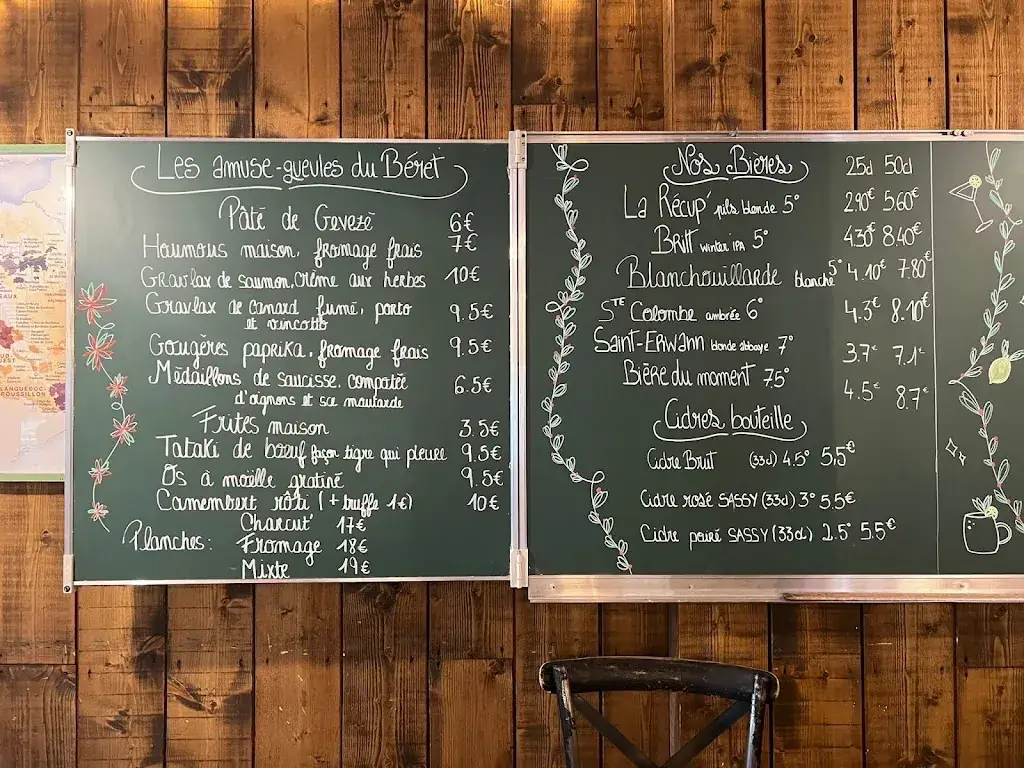 Les amuse-gueules du Béret
Pâté de Gevezé 6€
Houmous maison, fromage frais 7€
Gravlax de saumon, crème aux herbes 10€
Gravlax de canard fumé, porto 9.5€
et vincotto
Gougères paprika, fromage frais 9.5€
Médaillons de saucisse, compotée 6.5€
d'oignons et sce moutarde
Frites maison 3.5€
Tataki de bœuf façon tigre qui pleure 9.5€
Os à moëlle gratiné 9.5€
Camembert rôti (+ truffe 1€) 10€
Charcut' 17€
Planches: Fromage 18€
Mixte 19€
Nos Bières 25cl 50cl
La Récup' pils blonde 5° 2.90€ 5.60€
Britt winter IPA 5° 4.30€ 8.40€
Blanchouillarde blanche 5° 4.10€ 7.80€
Ste Colombe ambrée 6° 4.3€ 8.10€
Saint-Erwann blonde abbaye 7° 3.7€ 7.1€
Bière du moment 7.5° 4.5€ 8.7€
Cidres bouteille
Cidre Brut (33cl) 4.5° 5,5€
Cidre rosé SASSY (33cl) 3° 5.5€
Cidre poiré SASSY (33cl) 2.5° 5.5€
LANGUEDOC-
ROUSSILLON